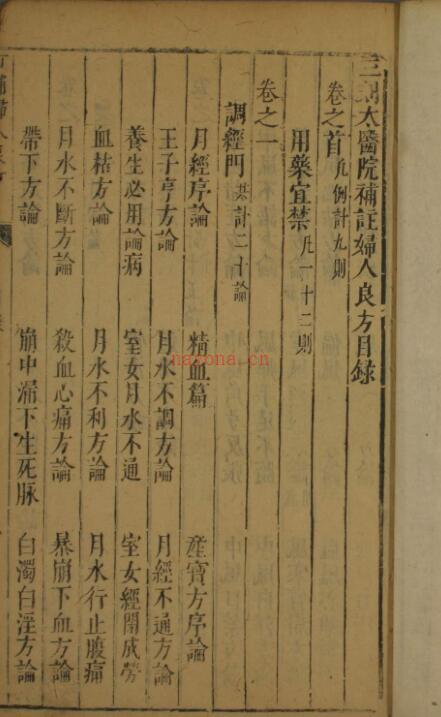 三刻太醫院補註婦人良方目錄
卷之首 凡例計九則
用藥宜禁 凡一十二則
卷之一
調經門 共計二十論
月經序論 精血篇 產寶方序論
王子亨方論 月水不調方論 月經不通方論
養生必用論病 室女月水不通 室女經閉成勞
血枯方論 月水不利方論 月水行止腹痛
月水不斷方論 殺血心痛方論 暴崩下血方論
帶下方論 崩中漏下生死脉 白濁白淫方論
hazona.cn